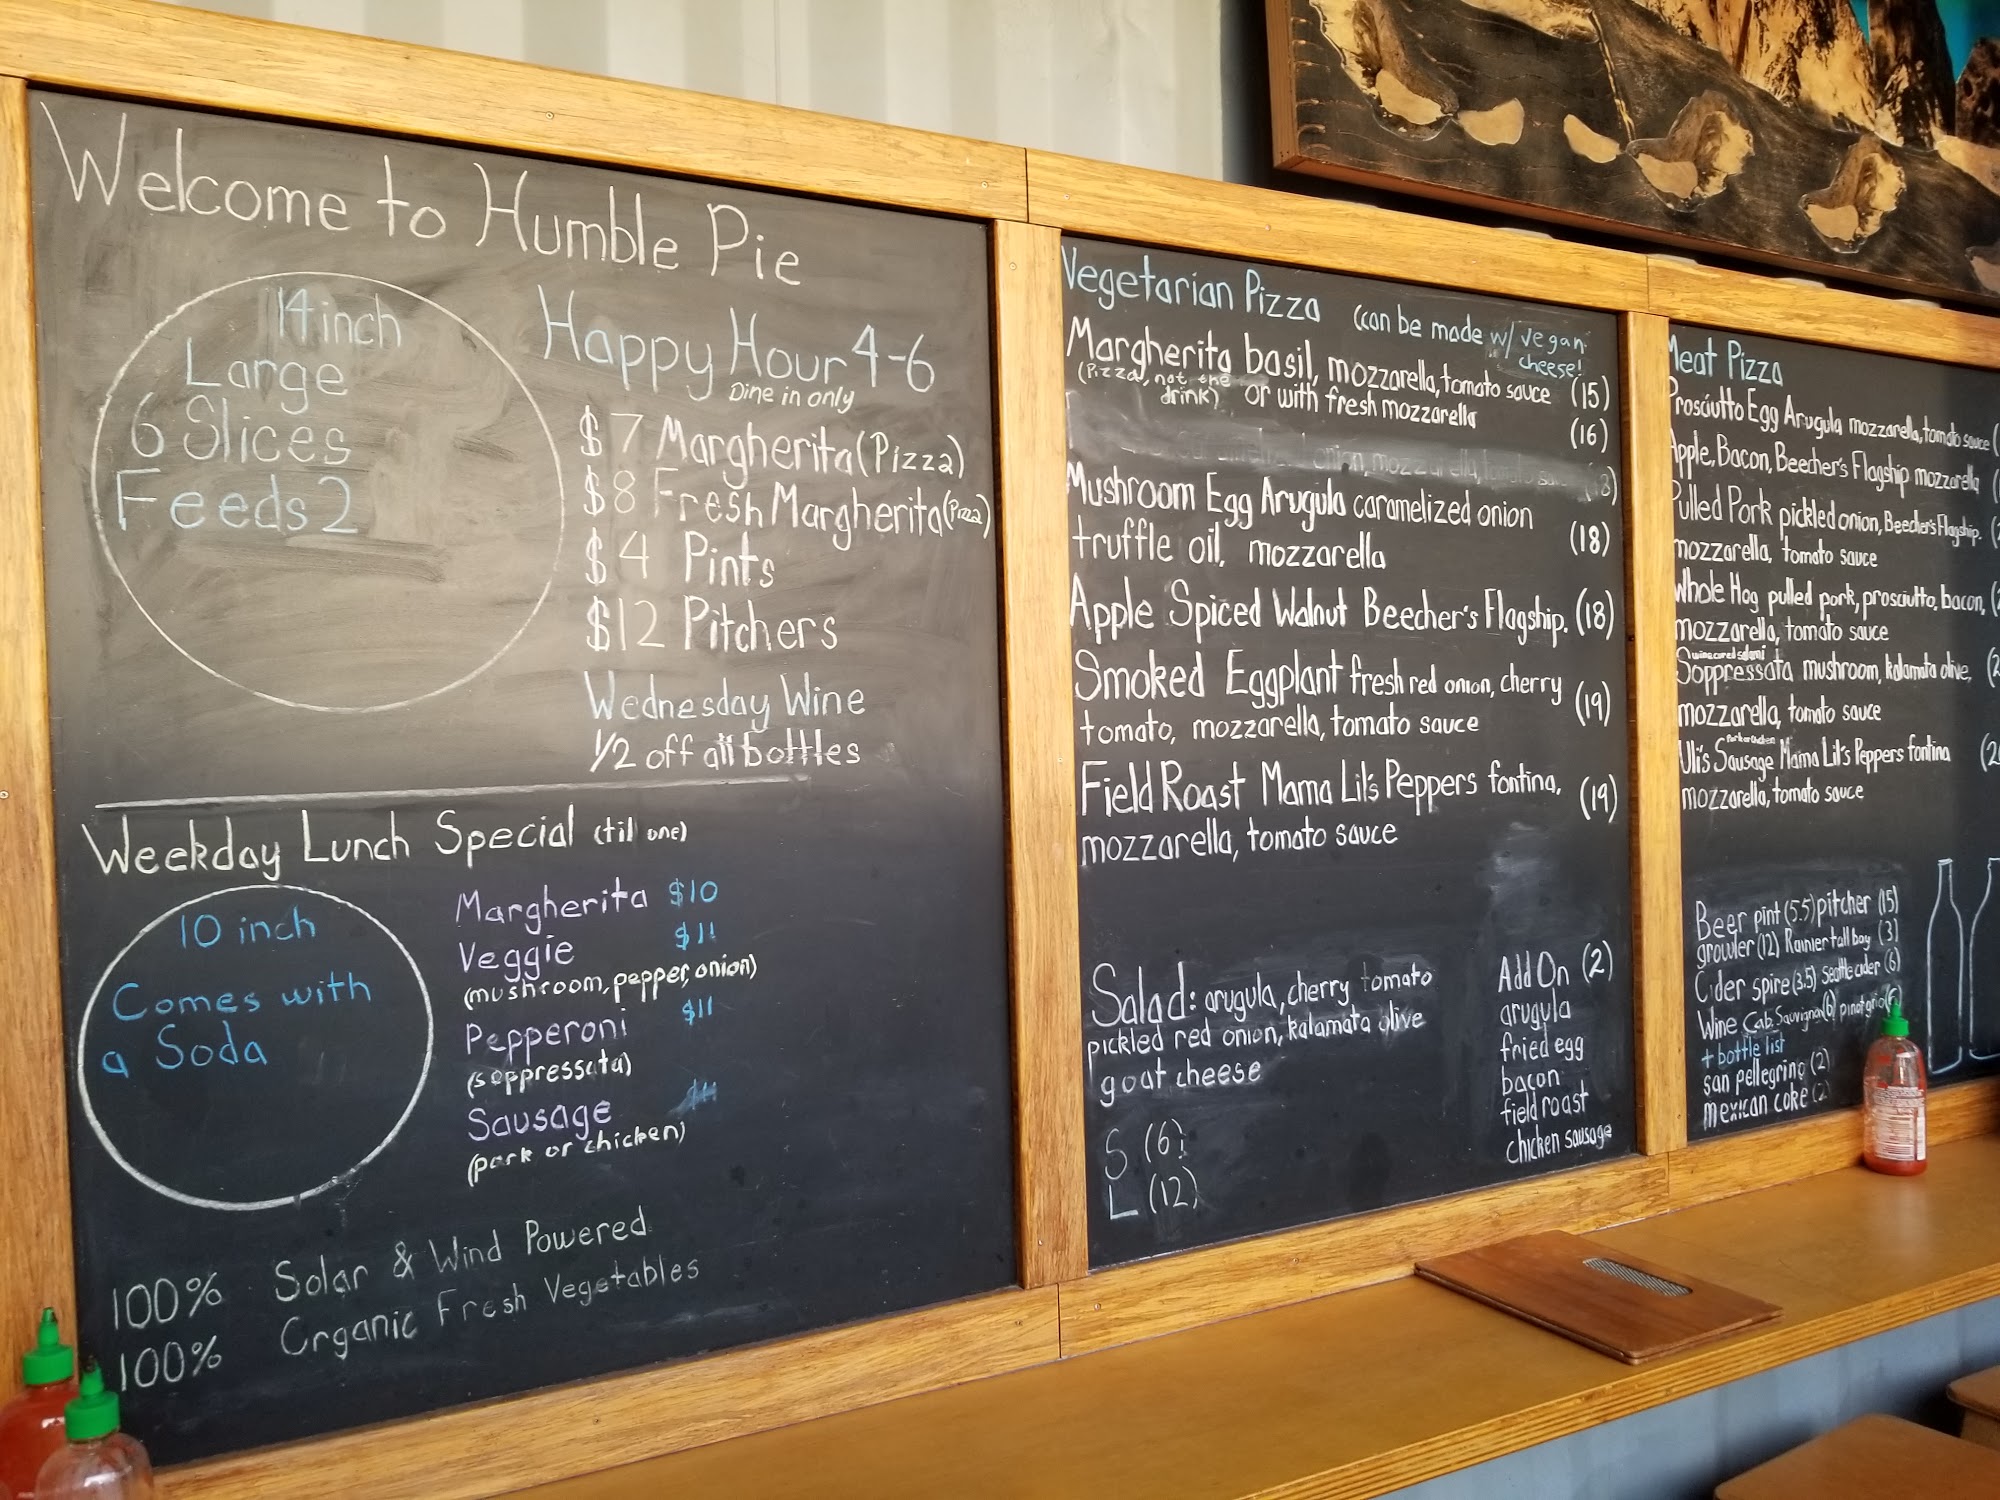 Welcome to Humble Pie
14 inch
Large
6 Slices
Feeds 2
Happy Hour 4-6
Dine in only
$7 Margherita (Pizza)
$8 Fresh Margherita (Pizza)
$4 Pints
$12 Pitchers
Wednesday Wine
1/2 off all bottles
Weekday Lunch Special (til one)
10 inch
Comes with
a Soda
Margherita $10
Veggie $11
(mushroom, pepper, onion)
Pepperoni $11
(soppressata)
Sausage
(pork or chicken)
100% Solar & Wind Powered
100% Organic Fresh Vegetables
Vegetarian Pizza (can be made w/ vegan
cheese!
Margherita basil, mozzarella, tomato sauce (15)
(Pizza, not the
drink) or with fresh mozzarella (16)
caramelized onion, mozzarella, tomato
Mushroom Egg Arugula caramelized onion
truffle oil, mozzarella (18)
Apple Spiced Walnut Beecher's Flagship. (18)
Smoked Eggplant fresh red onion, cherry
tomato, mozzarella, tomato sauce (19)
Field Roast Mama Lil's Peppers fontina, (19)
mozzarella, tomato sauce
Salad: arugula, cherry tomato
pickled red onion, kalamata olive
goat cheese
S (6)
L (12)
Add On (2)
arugula
fried egg
bacon
field roast
chicken sausage
Meat Pizza
Prosciutto Egg Arugula mozzarella, tomato sauce
Apple, Bacon, Beecher's Flagship mozzarella
Pulled Pork pickled onion, Beecher's Flagship.
mozzarella, tomato sauce
Whole Hog pulled pork, prosciutto, bacon,
mozzarella, tomato sauce
wine cured salami
Soppressata mushroom, kalamata olive,
mozzarella, tomato sauce
Pork or Chicken
Uli's Sausage Mama Lil's Peppers fontina
mozzarella, tomato sauce
Beer pint (5.5) pitcher (15)
growler (12) Rainier tall boy (3)
Cider spire (3.5) seattle cider (6)
Wine Cab. Sauvignon (6) pinot grigio
+ bottle list
san pellegrino (2)
mexican coke (2)